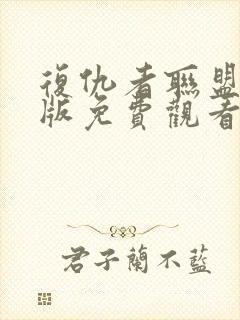 復仇者聯盟
版免費觀看
君子蘭不藍